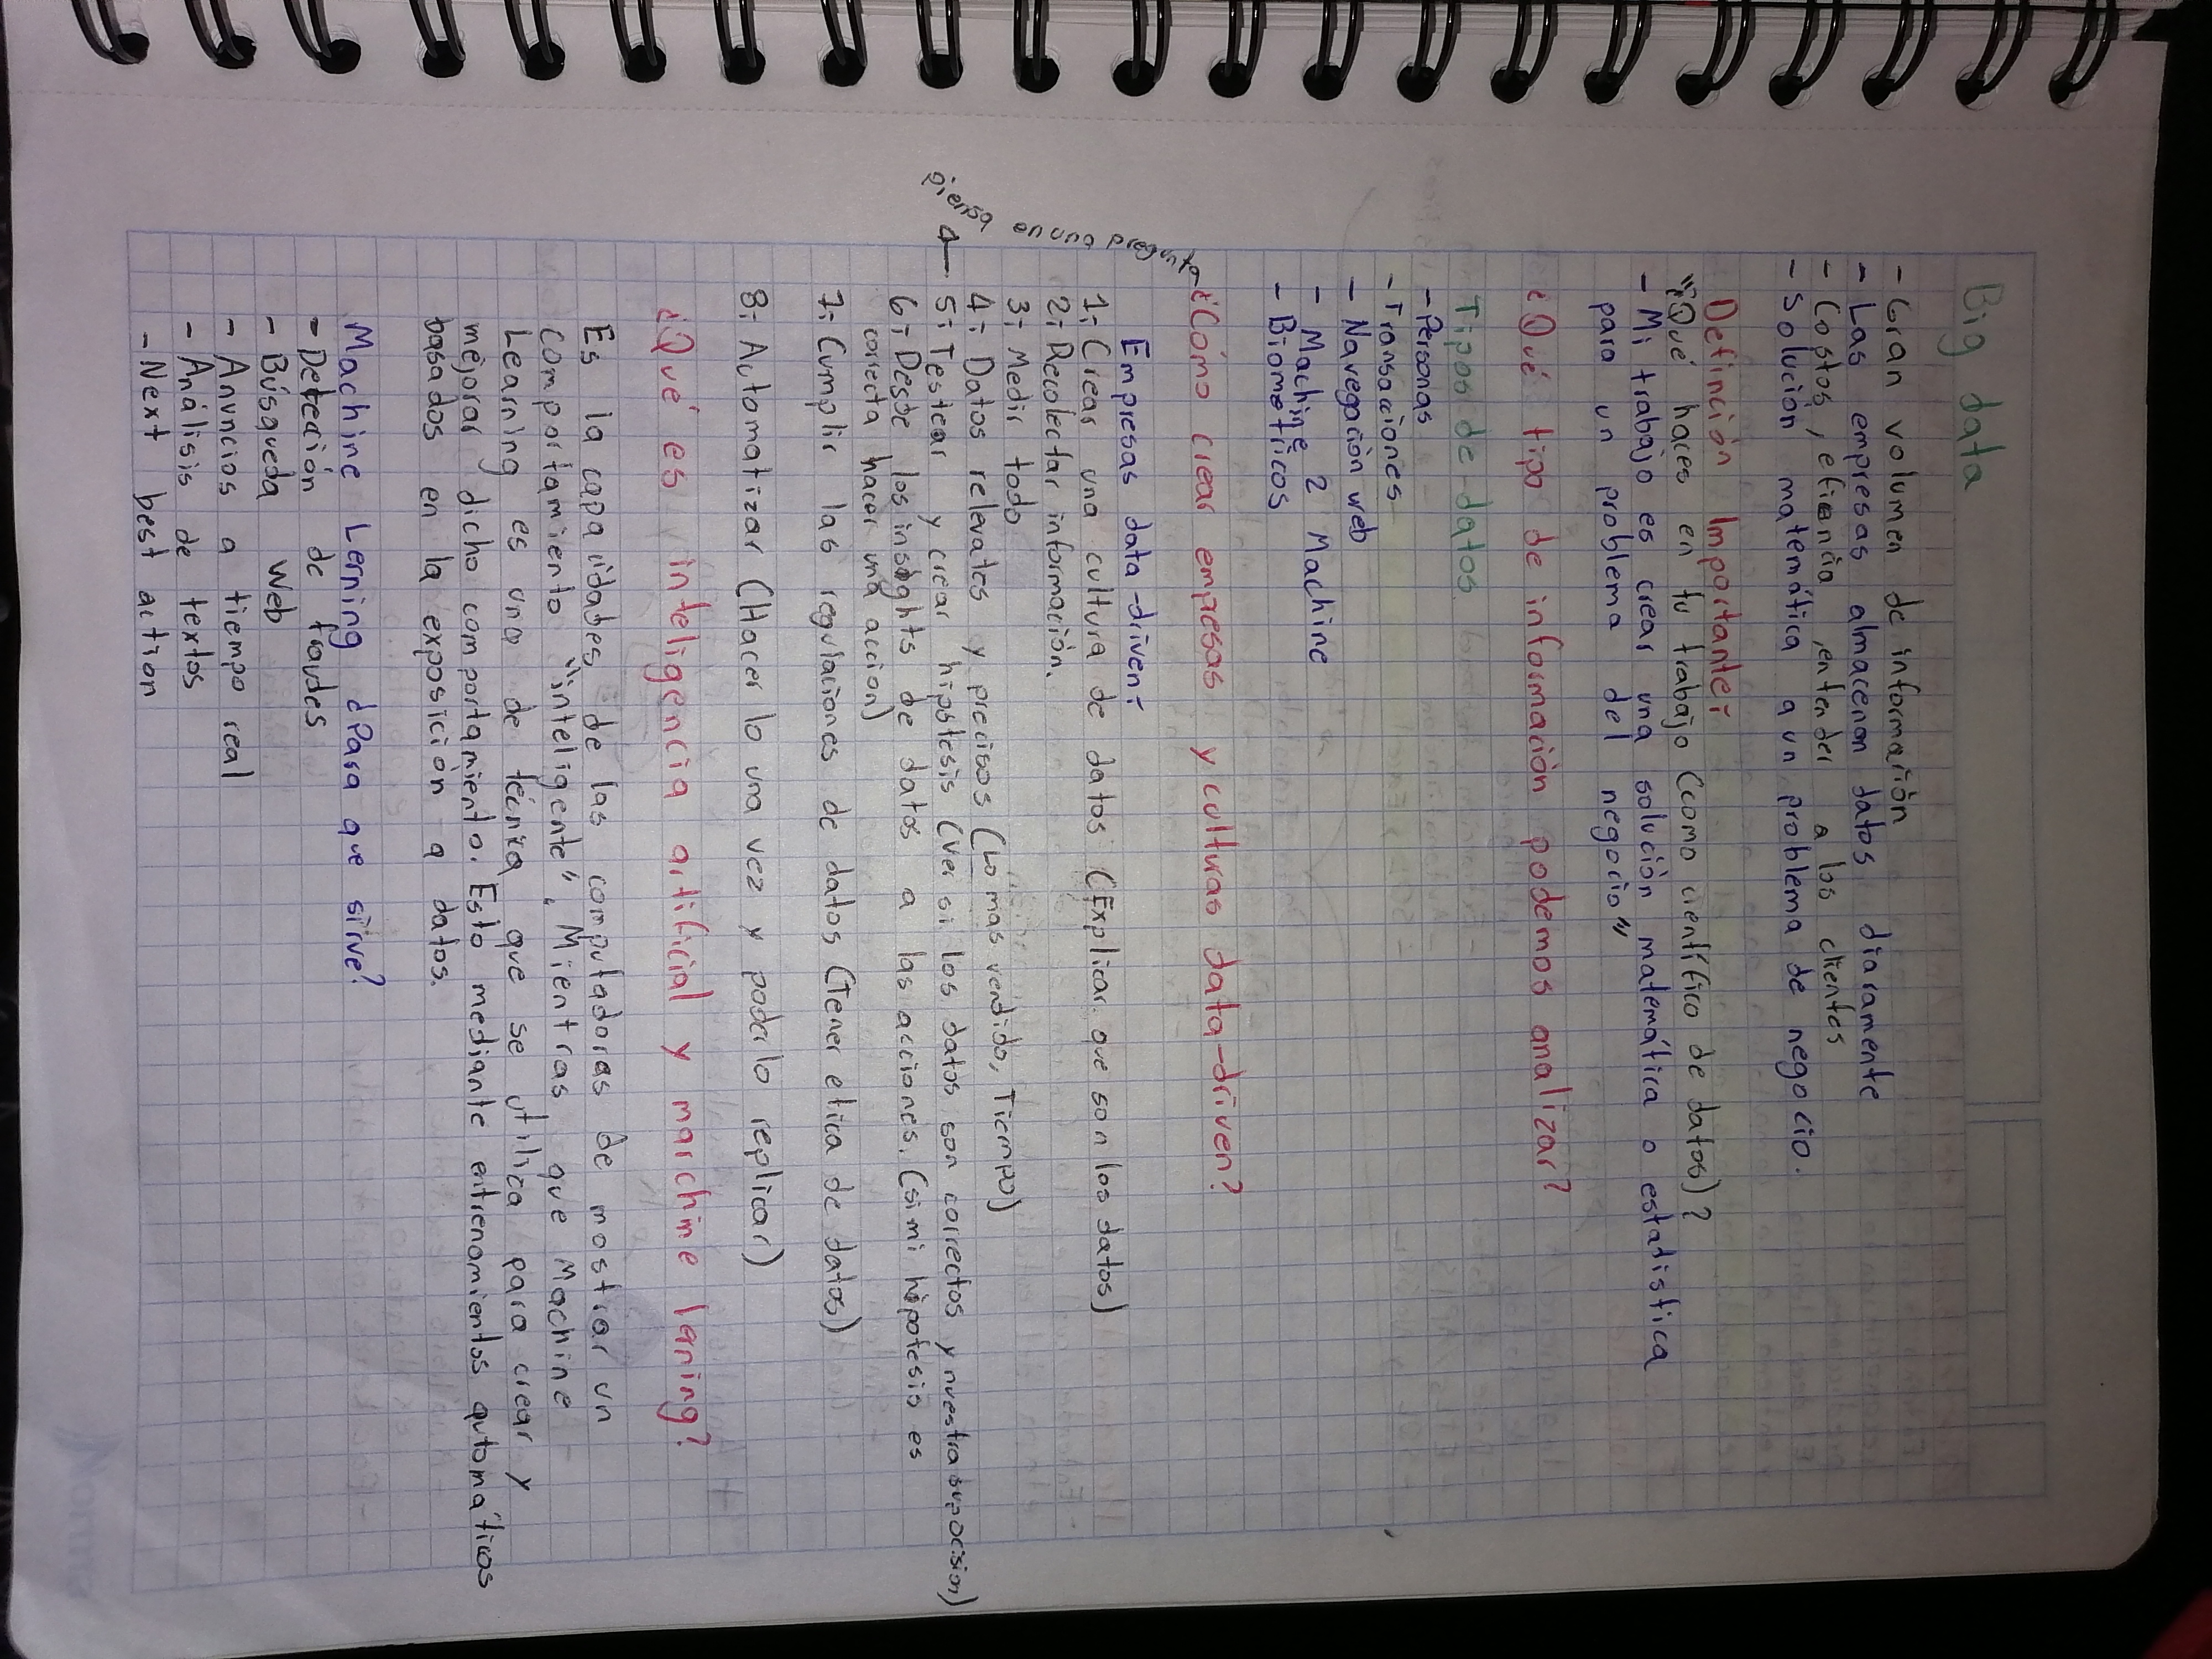 Big data
- Gran volumen de información
- Las empresas almacenan datos diaramente
- Costos, efiencia, entender a los clientes
- Solución matemática a un problema de negocio.
Definción Importante:
"¿Qué haces en tu trabajo (como científico de datos)?
- Mi trabajo es crear una solución matemática o estadistica
para un problema del negocio"
¿Qué tipo de información podemos analizar?
Tipos de datos
- Personas
- Transacciones
- Navegación web
- Machine 2 Machine
- Biometricos
¿Cómo crear empresas y culturas data-driven?
Empresas data-driven:
1: Crear una cultura de datos (Explicar que son los datos)
2: Recolectar información.
3: Medir todo
4: Datos relevates y precisos (Lo mas vendido, Tiempo)
Piensa en una pregunta
5: Testear y crear hipotesis (Ver si los datos son correctos y nuestra supocision)
6: Desde los insights de datos a las acciones. (si mi hipotesis es
correcta hacer una accion)
7: Cumplir las regulaciones de datos (Tener etica de datos)
8: Automatizar (Hacer lo una vez y poder lo replicar)
¿Qué es inteligencia artificial y marchine lerning?
Es la capacidades de las computadoras de mostrar un
comportamiento "inteligente". Mientras que Machine
Learning es una de técnica que se utilica para crear y
mejorar dicho comportamiento. Esto mediante entrenamientos automáticos
basados en la exposición a datos.
Machine Lerning ¿Para que sirve?
- Detección de fraudes
- Búsqueda Web
- Anuncios a tiempo real
- Análisis de textos
- Next best action
Norma